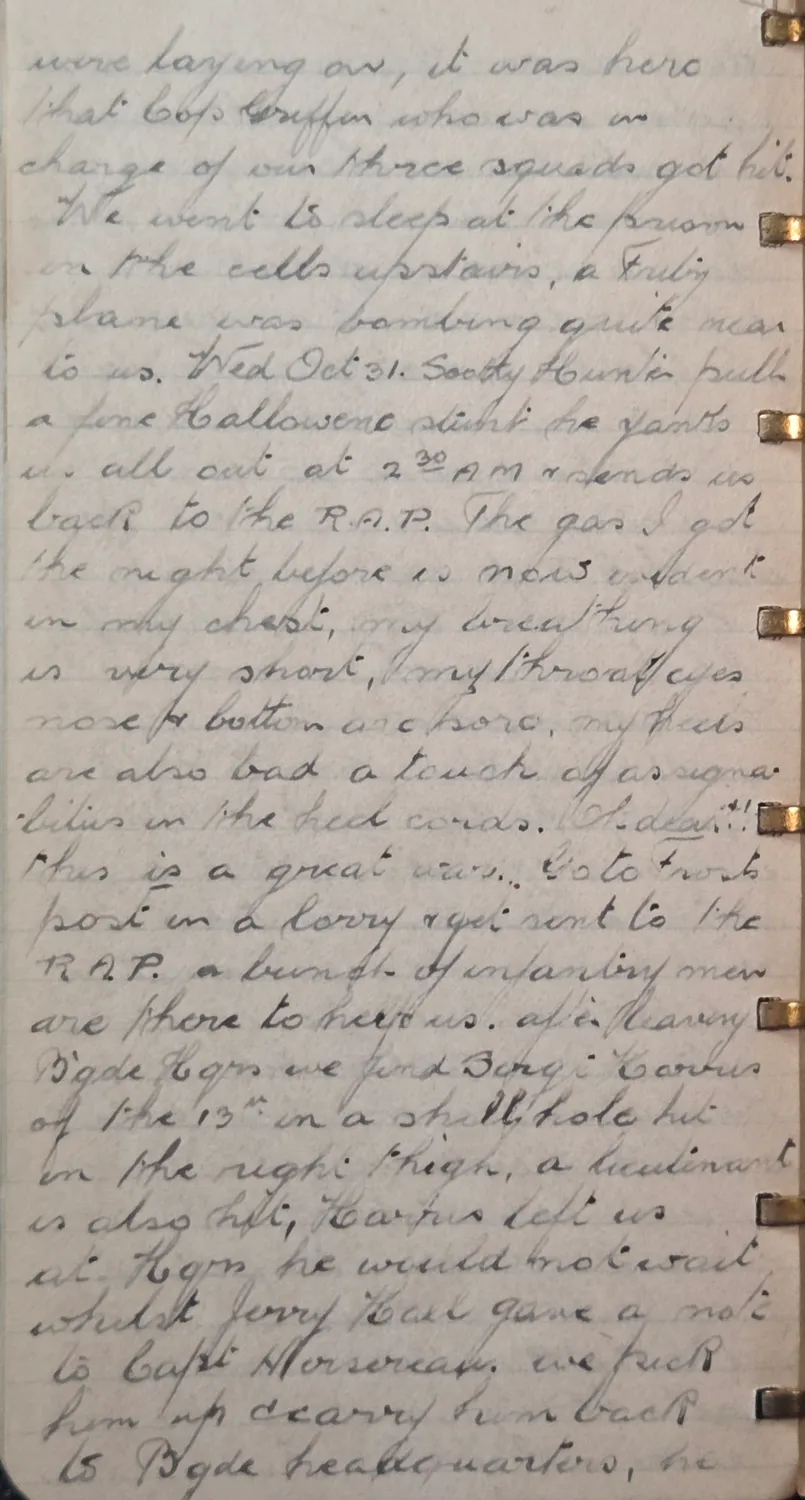 were laying on, it was here
that Cop Griffin who was in
charge of our three squads got hit.
We went to sleep at the prison
in the cells upstairs, a
plane was bombing quite near
to us. Wed Oct 31. Scotty Hunter pulls
a fine Hallowene stunt he yanks
us all out at 2 30 AM & sends us
back to the R.A.P. The gas I got
the night before is now evident
in my chest, my breathing
is very short, my throat eyes
nose & bottom are sore, my heels
are also bad a touch of assigna-
-bitius in the heel cords. Oh dear!!
this is a great war. Go to Frosts
post in a lorry & get sent to the
R.A.P. a bunch of infantry men
are there to help us. after leaving
Bgde Hqrs we find Sergt Harris
of the 13th in a shell hole hit
in the right thigh, a lieutinant
is also hit, Harris left us
at Hqrs he would not wait
whilst Jerry Hall gave a note
to Capt we pick
him up & carry him back
to Bgde headquarters, he